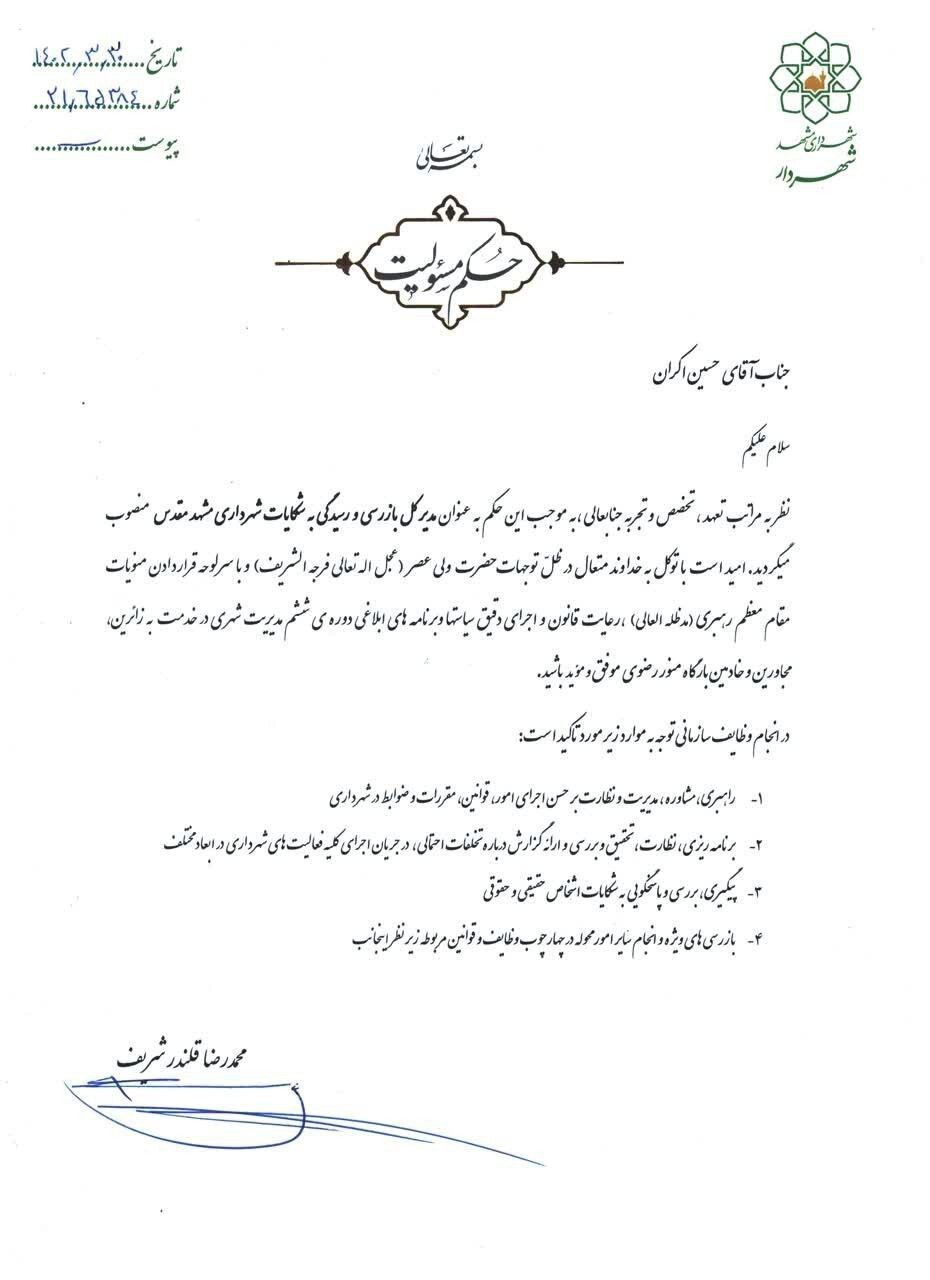 شهرداری مشهد
شهردار
تاریخ ۱۴۰۲/۳/۳۰
شماره ۲۱/۶۵۲۸۴
پیوست
بسمه تعالی
حکم مسئولیت
جناب آقای حسین اکران
سلام علیکم
نظر به مراتب تعهد، تخصص و تجربه جنابعالی، به موجب این حکم به عنوان مدیر کل بازرسی و رسیدگی به شکایات شهرداری مشهد مقدس منصوب
میگردید. امید است با توکل به خداوند متعال در ظلّ توجهات حضرت ولی عصر (عجل اله تعالی فرجه الشریف) و با سرلوحه قرار دادن منویات
مقام معظم رهبری (مدظله العالی)، رعایت قانون و اجرای دقیق سیاستها وبرنامه های ابلاغی دوره ی ششم مدیریت شهری در خدمت به زائرین،
مجاورین و خادمین بارگاه منور رضوی موفق و مؤید باشید.
در انجام وظایف سازمانی توجه به موارد زیر مورد تاکید است:
۱- راهبری، مشاوره، مدیریت و نظارت بر حسن اجرای امور، قوانین، مقررات و ضوابط در شهرداری
۲- برنامه ریزی، نظارت، تحقیق و بررسی و ارائه گزارش درباره تخلفات احتمالی، در جریان اجرای کلیه فعالیت های شهرداری در ابعاد مختلف
۳- پیگیری، بررسی و پاسخگویی به شکایات اشخاص حقیقی و حقوقی
۴- بازرسی های ویژه و انجام سایر امور محوله در چهارچوب وظایف و قوانین مربوطه زیر نظر اینجانب
محمدرضا قلندر شریف